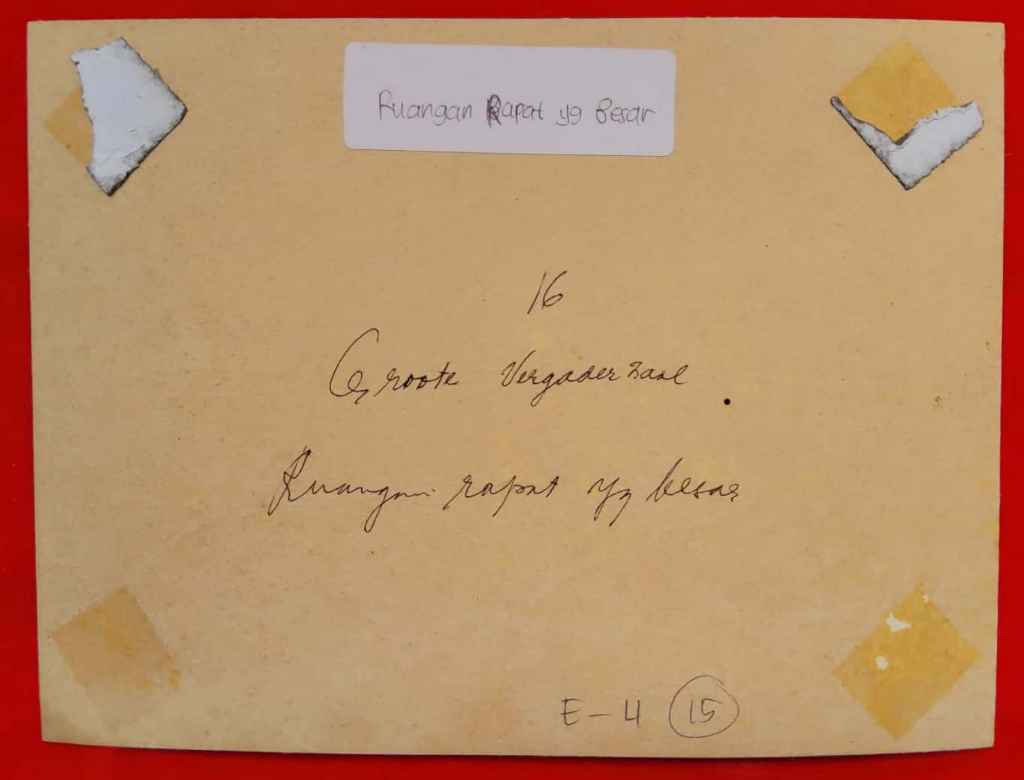 Ruangan Rapat yg Besar
16
Groote Vergaderzaal
Ruangan rapat yg besar
E-4 15